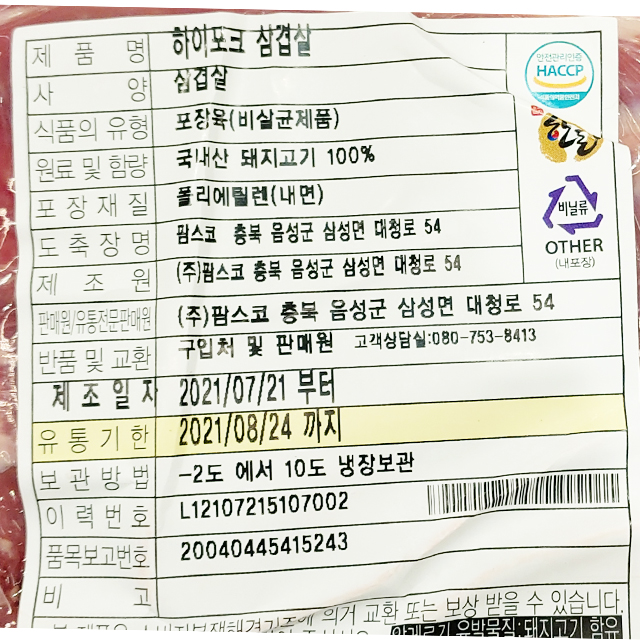 제 품 명 하이포크 삼겹살
사 양 삼겹살
식품의 유형 포장육(비살균제품)
원료 및 함량 국내산 돼지고기 100%
포 장 재 질 폴리에틸렌(내면)
도 축 장 명 팜스코 충북 음성군 삼성면 대청로 54
제 조 원 (주)팜스코 충북 음성군 삼성면 대청로 54
판매원/유통전문판매원 (주)팜스코 충북 음성군 삼성면 대청로 54
반품 및 교환 구입처 및 판매원 고객상담실:080-753-8413
제 조 일 자 2021/07/21 부터
유 통 기 한 2021/08/24 까지
보 관 방 법 -2도 에서 10도 냉장보관
이 력 번 호 L12107215107002
품목보고번호 20040445415243
비 고
안전관리인증
HACCP
한돈
비닐류
OTHER
(내포장)
의거 교환 또는 보상 받을 수 있습니다.
알레르기 유발물질:돼지고기 함유